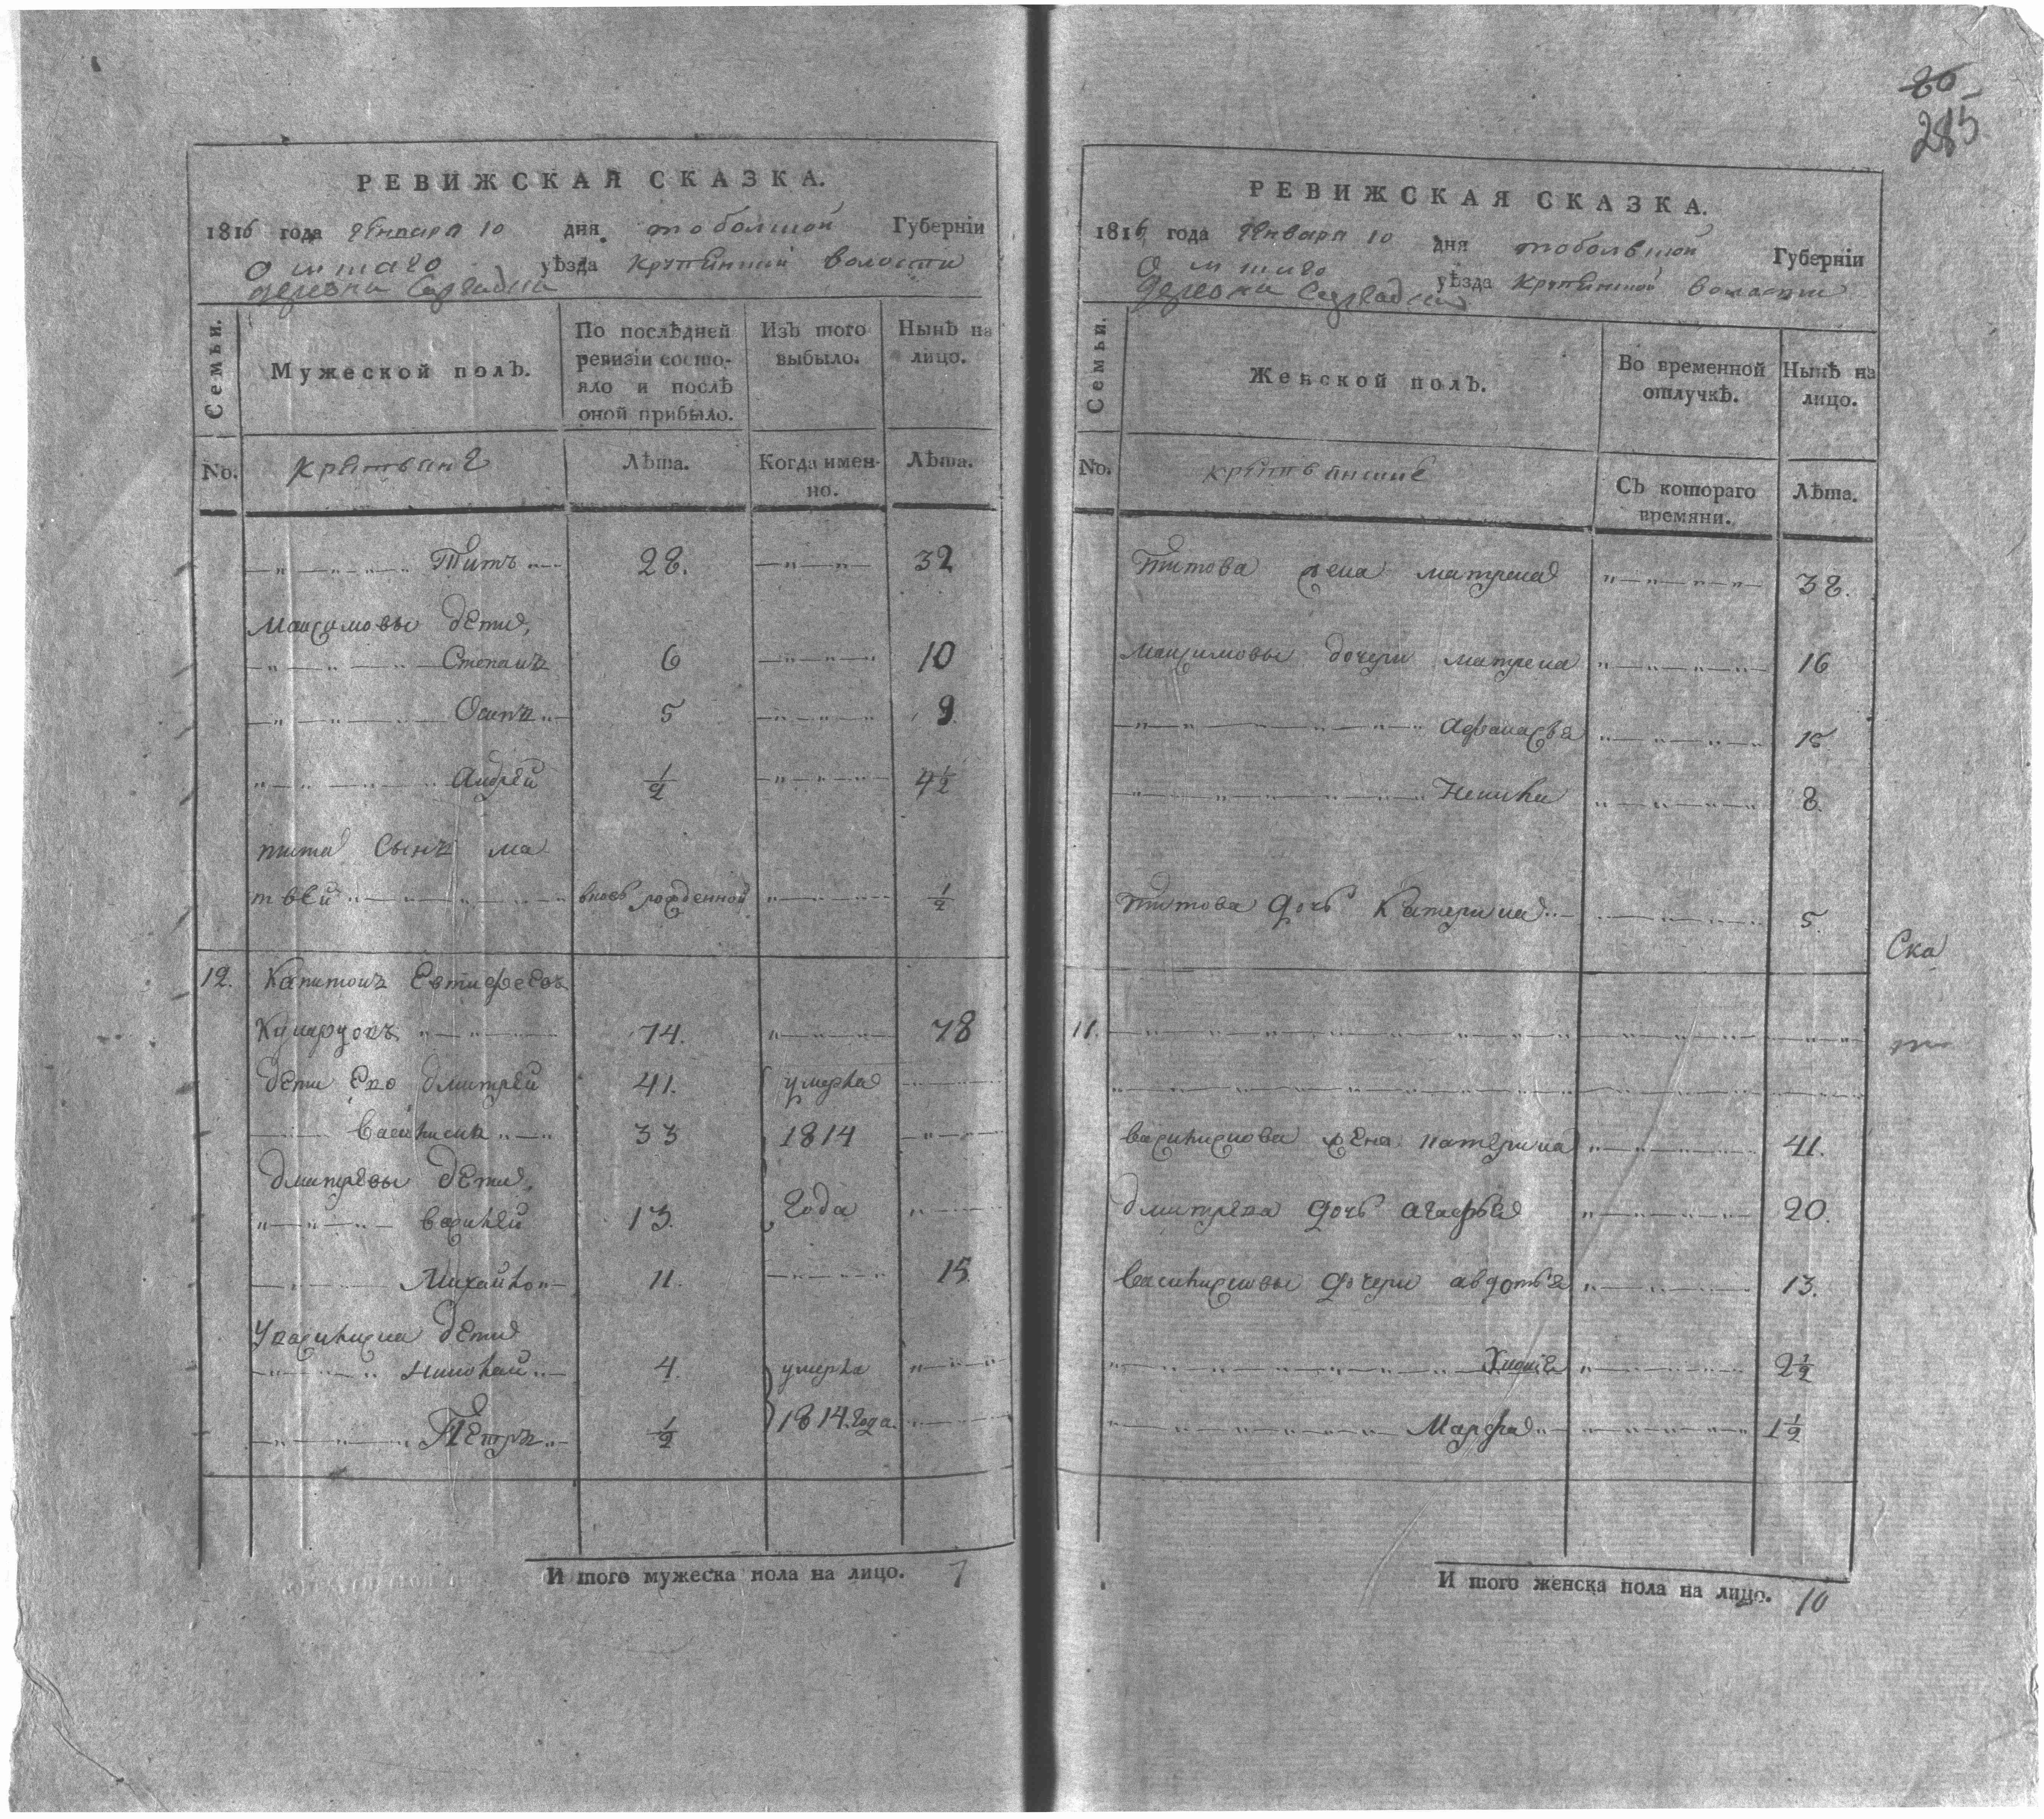 80
285
РЕВИЖСКАЯ СКАЗКА.
1816 года Генваря 10 дня тобольской Губерніи
Омскаго уѣзда Крупинской волости
деревни
Семьи.
Мужеской полъ.
По послѣдней ревизіи состо-
яло и послѣ
оной прибыло.
Изъ того
выбыло.
Нынѣ на
лицо.
No. крестьяне
Лѣта.
Когда имен-
но.
Лѣта.
Титъ 28. 32
Максимовы дети,
Степанъ 6 10
Осипъ 5 9.
Андрей 1/2 4 1/2
тита Сынъ ма
твей вновь рожденной 1/2
12. Капитонъ Евтифеевъ
74. 78
дети Ево Дмитрей 41. умерли
Василискъ 33 1814
Дмитревы дети,
василей 13. года
Михайло 11. 15.
У василиска дети
Николай 4. умерли
Петръ 1/2 1814. года.
И того мужеска пола на лицо. 7
РЕВИЖСКАЯ СКАЗКА.
1816 года Генваря 10 дня тобольской Губерніи
Омскаго уѣзда Крупинской волости
деревни
Семьи.
Женской полъ.
Во временной
отлучкѣ.
Нынѣ на
лицо.
No. крестьянские
Съ котораго
времяни.
Лѣта.
Титова жена матрена 38.
Максимовы дочери матрена 16
Афанасья 15
Ненила 8.
Титова дочь Катерина 5.
Ска
11.
василискова жена катерина 41.
дмитрева дочь агафья 20.
василисковы дочери авдотья 13.
Хиония 2 1/2
Марфа 1 1/2
И того женска пола на лицо. 10